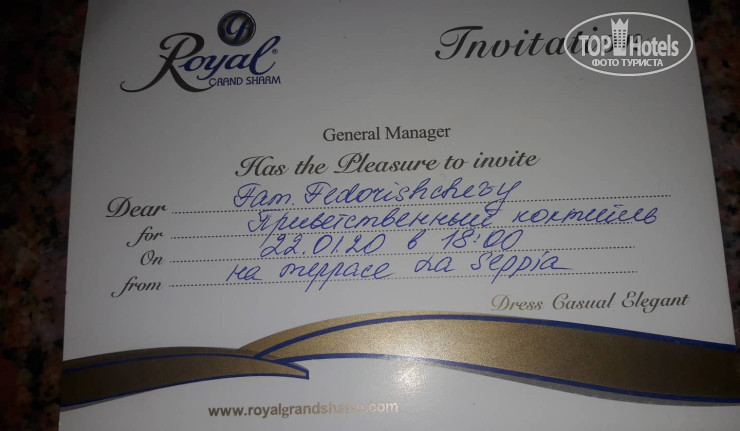 Royal®
GRAND SHARM
Invitation
TOP Hotels
ФОТО ТУРИСТА
General Manager
Has the Pleasure to invite
Dear Fam. Fedorishchevy
for Приветственный коктейль
On 22.01.20 в 18:00
from на террасе La Seppia
Dress Casual Elegant
www.royalgrandsharm.com